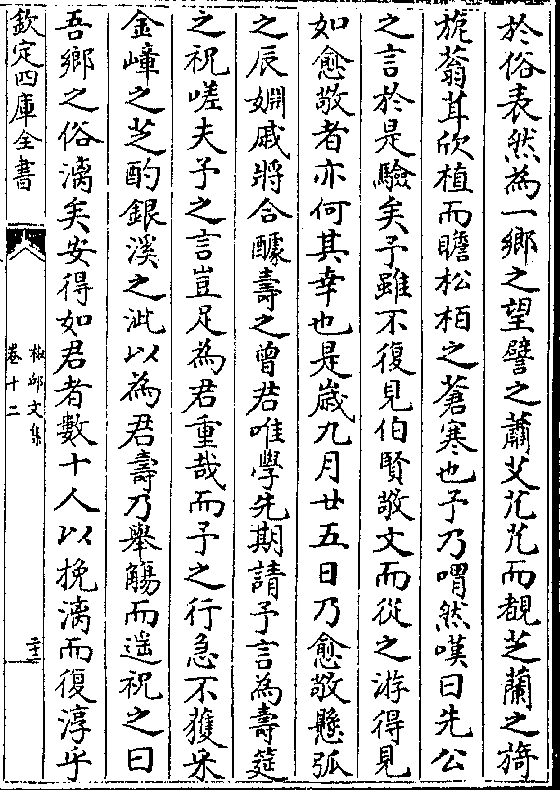 於俗表然為一鄉之望譬之蕭艾芃芃而覩芝蘭之旖
旎蓊茸欣植而瞻松柏之蒼寒也予乃喟然嘆曰先公
之言於是驗矣予雖不復見伯賢敬文而從之游得見
如愈敬者亦何其幸也是歲九月廿五日乃愈敬懸弧
之辰婣戚將合醵壽之曾君唯學先期請予言為壽筵
之祝嗟夫予之言豈足為君重哉而予之行急不獲采
金嶂之芝酌銀溪之泚以為君壽乃舉觴而遥祝之曰
吾鄉之俗漓矣安得如君者數十人以挽漓而復淳乎
欽定四庫全書
椒邱文集
卷十二